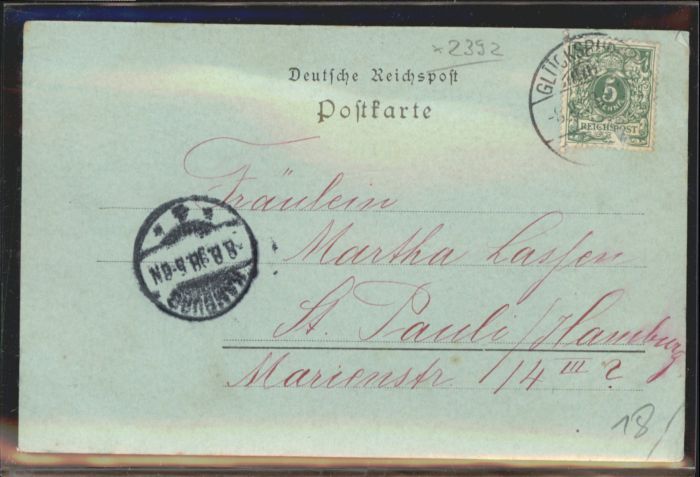 × 2392
Deutsche Reichspost
Postkarte
5
REICHSPOST
Fräulein
Martha Lassen
St. Pauli / Hamburg
Marienstr 14 III ?
HAMBURG
18/